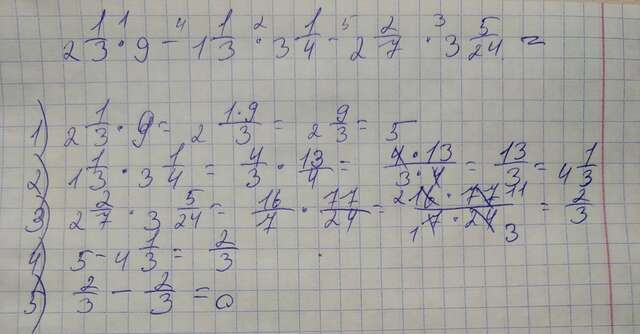 2 1/3 ·¹ 9 -⁴ 1 1/3 ·² 3 1/4 -⁵ 2 2/7 ·³ 3 5/24 =
1) 2 1/3 · 9 = 2 1·9/3 = 2 9/3 = 5
2) 1 1/3 · 3 1/4 = 4/3 · 13/4 = 4·13/3·4 = 13/3 = 4 1/3
3) 2 2/7 · 3 5/24 = 16/7 · 77/24 = 2 16 · 77 11/1 7 · 24 3 = 2/3
4) 5 - 4 1/3 = 2/3
5) 2/3 - 2/3 = 0